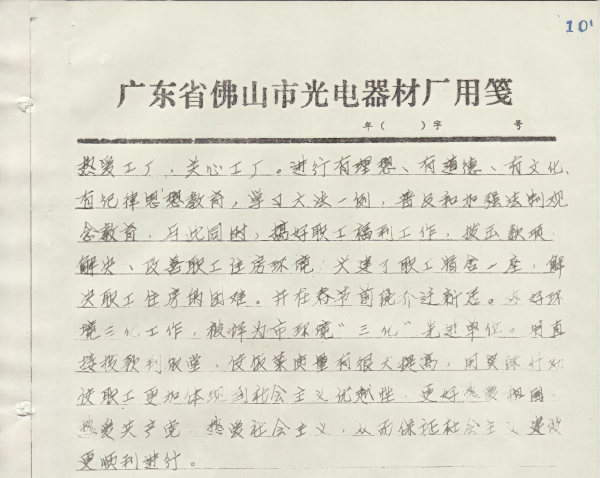 101
广东省佛山市光电器材厂用笺
年( )字 号
热爱工厂,关心工厂。进行有理想、有道德、有文化、
有纪律思想教育,学习大法一例,普及和加强法制观
念教育,与此同时,搞好职工福利工作,拨出款项
解决、改善职工住房环境,兴建了职工宿舍一座,解
决职工住房的困难。并在春节前 迁新 。 好环
境三化工作,被评为市环境“三化”先进单位。 直
接 款到饭堂,使饭菜质量有很大提高,用实际行动
使职工更加体现到社会主义优越性,更好热爱祖国,
热爱共产党,热爱社会主义,从而保证社会主义建设
更顺利进行。